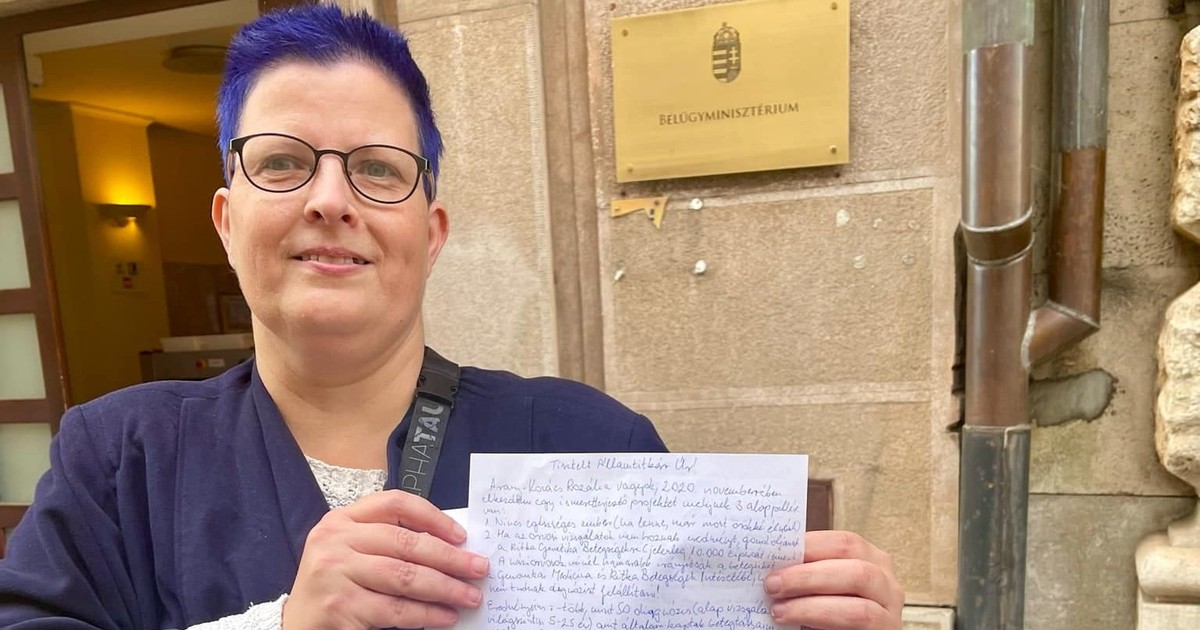 BELÜGYMINISZTÉRIUM
PHATAU
Tisztelt Államtitkár Úr!
Arany-Kovács Rozália vagyok, 2020. novemberében
elkezdtem egy ismeretterjesztő projektet melynek 3 alappillére
van:
1. Nincs egészséges ember (ha lenne, már most örökké élne)
2. Ha az orvosi vizsgálatok nem hoznak eredményt, gondoljanak
a Ritka Genetikai Betegségekre (jelenleg 10.000 típusát
A háziorvosok minél hamarabb irányítsák a betegeket
a Genomikai Medicina és Ritka Betegségek Intézetébe,
nem tudnak diagnózist felállítani!
Eredményem: több, mint 50 diagnózis (alap vizsgálat
világszinten 5-25 év) amit általam kaptak betegtársaim